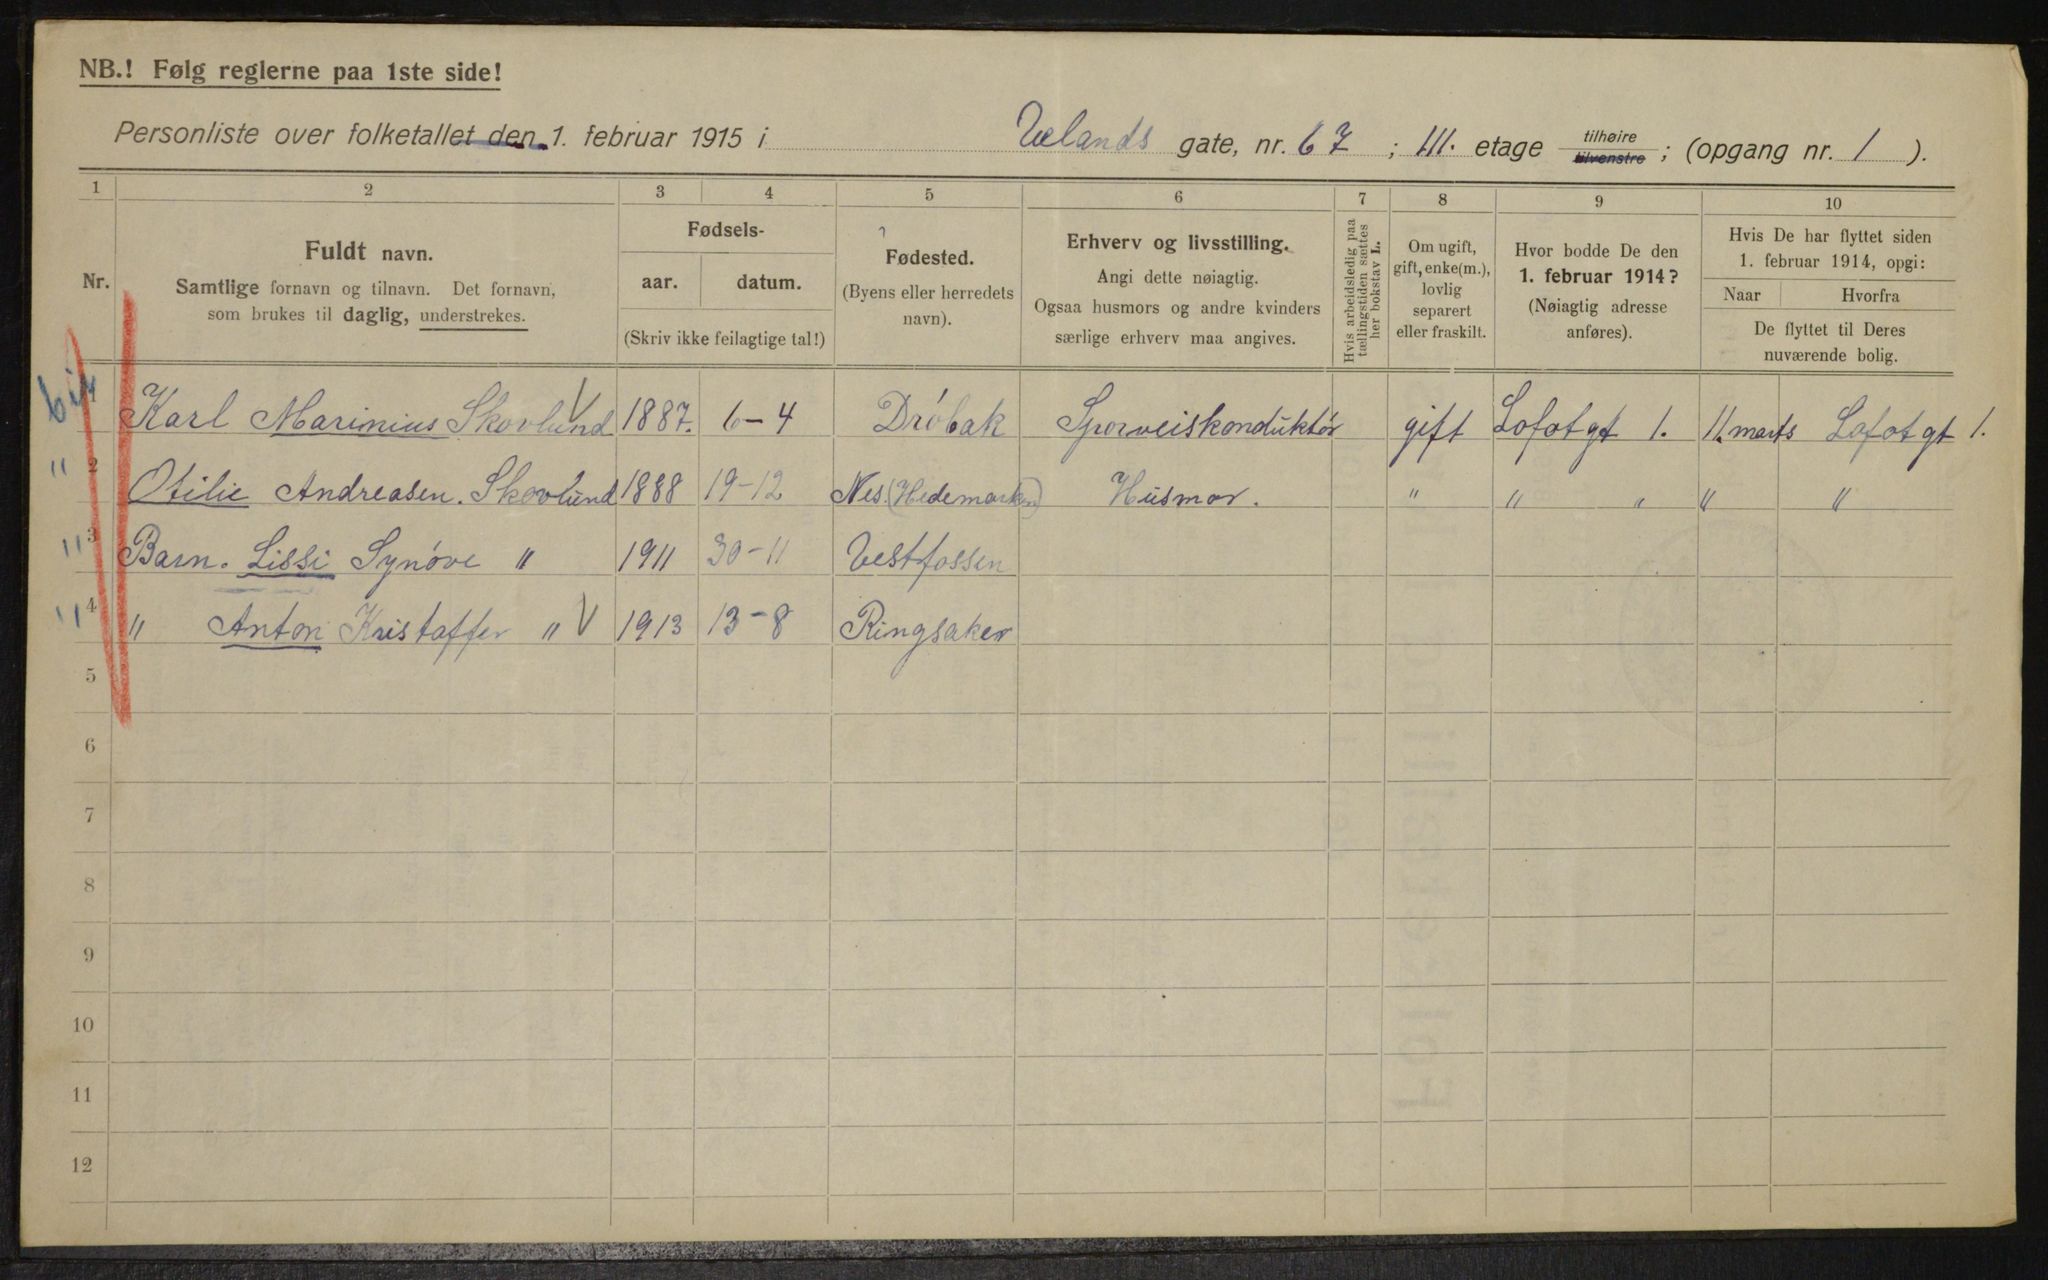 NB.! Følg reglerne paa 1ste side!
Personliste over folketallet den 1. februar 1915 i Uelands gate, nr. 67 ; III. etage tilhøire tilvenstre ; (opgang nr. 1 ).
1 2 3 4 5 6 7 8 9 10
Nr.
Fuldt navn.
Samtlige fornavn og tilnavn. Det fornavn,
som brukes til daglig, understrekes.
Fødsels-
aar. datum.
(Skriv ikke feilagtige tal!)
Fødested.
(Byens eller herredets
navn).
Erhverv og livsstilling.
Angi dette nøiagtig.
Ogsaa husmors og andre kvinders
særlige erhverv maa angives.
Hvis arbeidsledig paa
tællingstiden sættes
her bokstav L.
Om ugift,
gift, enke(m.),
lovlig
separert
eller fraskilt.
Hvor bodde De den
1. februar 1914?
(Nøiagtig adresse
anføres).
Hvis De har flyttet siden
1. februar 1914, opgi:
Naar Hvorfra
De flyttet til Deres
nuværende bolig.
Karl Marinius Skovlund 1887. 6-4 Drøbak Sporveiskonduktør gift Lofotgt 1. 11. marts Lofotgt 1.
" 2 Otilie Andreasen. Skovlund 1888 19-12 Nes (Hedemarken) Husmor. " " " " "
" 3 Barn. Lissi Synøve " 1911 30-11 Vestfossen
" 4 " Anton Kristoffer " V 1913 13-8 Ringsaker
5
6
7
8
9
10
11
12